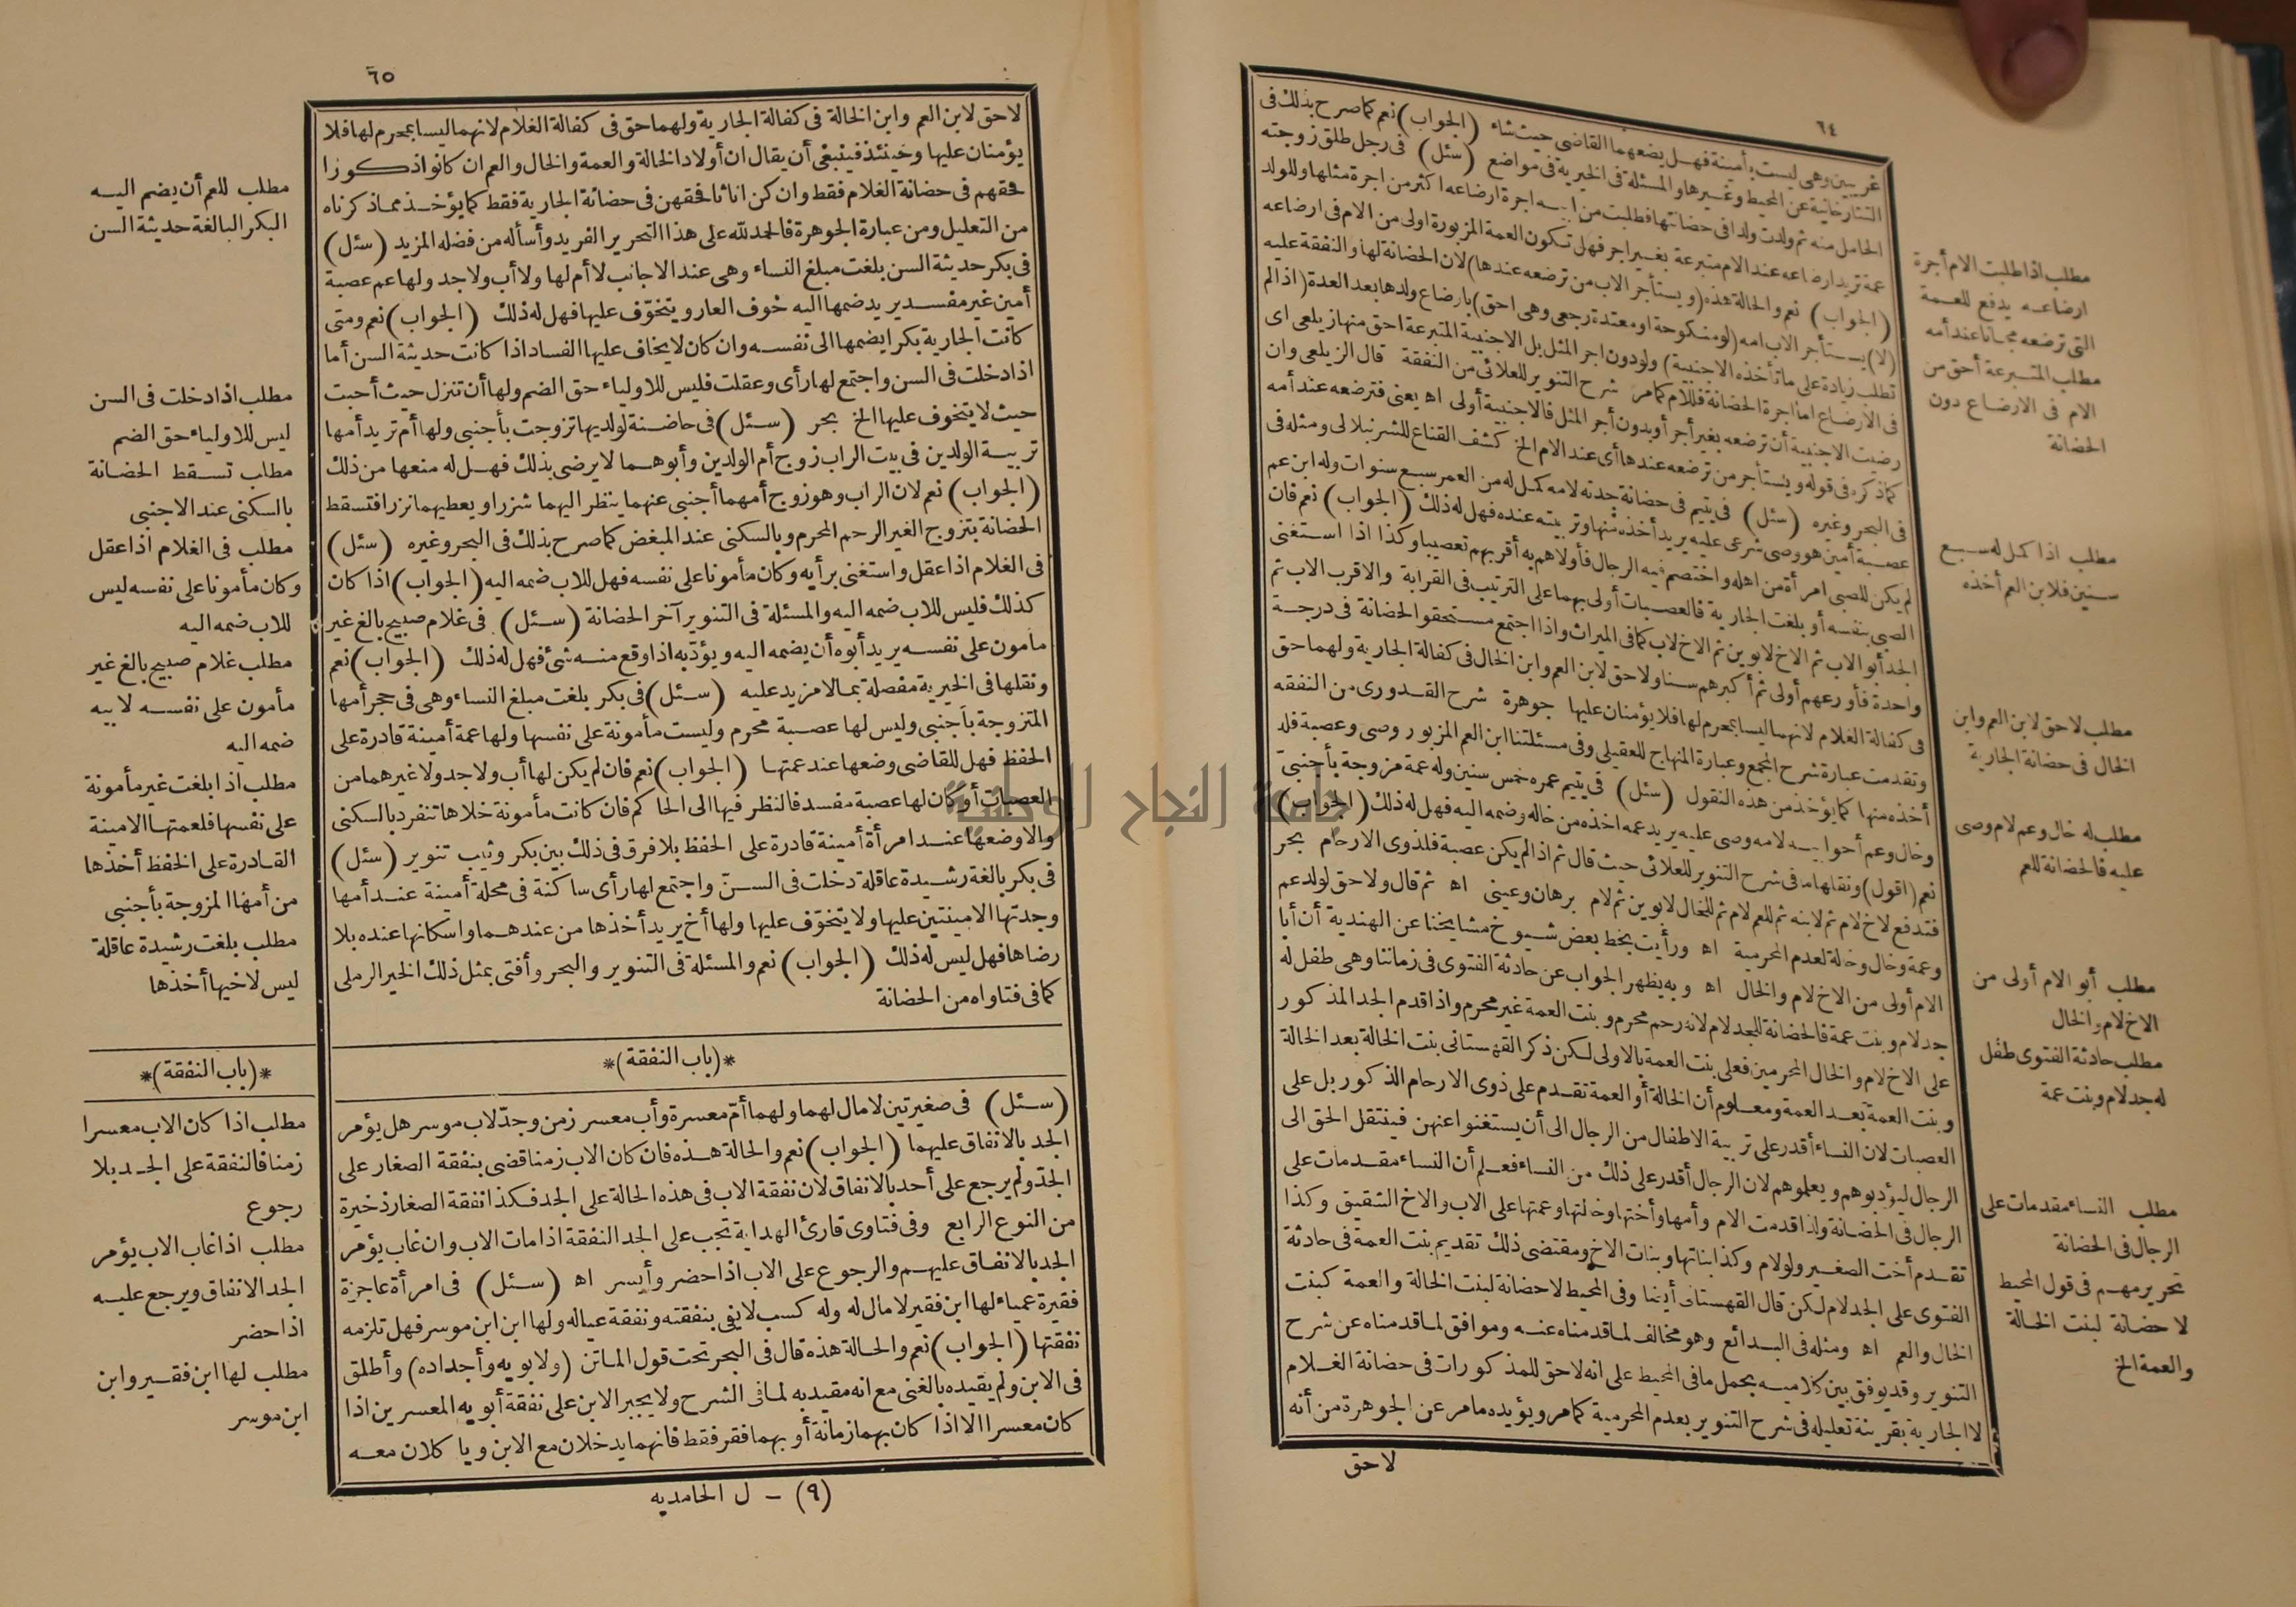 ٦٤
غريبين وهى ليست بأمينة فهل يضعهما القاضى حيث شاء (الجواب) نعم كما صرح بذلك فى
التتارخانية عن المحيط وغيرها والمسئلة فى الخيرية فى مواضع (سئل) فى رجل طلق زوجته
الحامل منه ثم ولدت ولدا فى حضانتها فطلبت من ابيه اجرة ارضاعه اكثر من اجرة مثلها وللولد
عمة تريد ارضاعه عند الام متبرعة بغير اجر فهل تكون العمة المزبورة اولى من الام فى ارضاعه
(الجواب) نعم والحالة هذه (ويستأجر الاب من ترضعه عندها) لان الحضانة لها والنفقة عليه
(لا) يستأجر الاب امه (لو منكوحة او معتدة رجعى وهى احق) بارضاع ولدها بعد العدة (اذا لم
تطلب زيادة على ما تأخذه الاجنبية) ولو دون اجر المثل بل الاجنبية المتبرعة احق منها زيلعى اى
فى الارضاع اما اجرة الحضانة فللام كما مر شرح التنوير للعلائى من النفقة قال الزيلعى وان
رضيت الاجنبية أن ترضعه بغير أجر أو بدون أجر المثل فالاجنبية أولى اه يعنى فترضعه عند أمه
كما ذكره فى قوله ويستأجر من ترضعه عندها أى عند الام الخ كشف القناع للشرنبلالى ومثله فى
فى البحر وغيره (سئل) فى يتيم فى حضانة جدته لامه كمل له من العمر سبع سنوات وله ابن عم
عصبة أمين هو وصى شرعى عليه يريد أخذه منها وتربيته عنده فهل له ذلك (الجواب) نعم فان
لم يكن للصبى امرأة من اهله واختصم فيه الرجال فأولاهم به أقربهم تعصيبا وكذا اذا استغنى
الصبى بنفسه أو بلغت الجارية فالعصبات أولى بهما على الترتيب فى القرابة والاقرب الاب ثم
الجد أبو الاب ثم الاخ لابوين ثم الاخ لاب كما فى الميراث واذا اجتمع مستحقو الحضانة فى درجة
واحدة فأورعهم أولى ثم أكبرهم سنا ولا حق لابن العم وابن الخال فى كفالة الجارية ولهما حق
فى كفالة الغلام لانهما ليسا بمحرم لها فلا يؤمنان عليها جوهرة شرح القدورى من النفقه
وتقدمت عبارة شرح المجمع وعبارة المنهاج للعقيلى وفى مسئلتنا ابن العم المزبور وصى وعصبة فله
أخذه منها كما يؤخذ من هذه النقول (سئل) فى يتيم عمره خمس سنين وله عمة مزوجة بأجنبى
وخال وعم أخو ابيه لامه وصى عليه يريد عمه اخذه من خاله وضمه اليه فهل له ذلك (الجواب)
نعم (اقول) ونقلها ما فى شرح التنوير للعلائى حيث قال ثم اذا لم يكن عصبة فلذوى الارحام بحر
فتدفع لاخ لام ثم لابنه ثم للعم لام ثم للخال لابوين ثم لام برهان وعينى اه ثم قال ولا حق لولد عم
وعمة وخال وخالة لعدم المحرمية اه ورأيت بخط بعض شيوخ مشايخنا عن الهندية أن أبا
الام أولى من الاخ لام والخال اه وبه يظهر الجواب عن حادثة الفتوى فى زماننا وهى طفل له
جد لام وبنت عمة فالحضانة للجد لام لانه رحم محرم وبنت العمة غير محرم واذا قدم الجد المذكور
على الاخ لام والخال المحرمين فعلى بنت العمة بالاولى لكن ذكر القهستانى بنت الخالة بعد الخالة
وبنت العمة بعد العمة ومعلوم أن الخالة أو العمة تقدم على ذوى الارحام الذكور بل على
العصبات لان النساء أقدر على تربية الاطفال من الرجال الى أن يستغنوا عنهن فينتقل الحق الى
الرجال ليؤدبوهم ويعلموهم لان الرجال أقدر على ذلك من النساء فعلم أن النساء مقدمات على
الرجال فى الحضانة ولذا قدمت الام وأمها وأختها وخالتها وعمتها على الاب والاخ الشقيق وكذا
تقدم أخت الصغير ولو لام وكذا بناتها وبنات الاخ ومقتضى ذلك تقديم بنت العمة فى حادثة
الفتوى على الجد لام لكن قال القهستانى أيضا وفى المحيط لا حضانة لبنت الخالة والعمة كبنت
الخال والعم اه ومثله فى البدائع وهو مخالف لما قدمناه عنه وموافق لما قدمناه عن شرح
التنوير وقد يوفق بين كلاميه بحمل ما فى المحيط على انه لا حق للمذكورات فى حضانة الغلام
لا الجارية بقرينة تعليله فى شرح التنوير بعدم المحرمية كما مر ويؤيده ما مر عن الجوهرة من أنه
لا حق
مطلب اذا طلبت الام أجرة
ارضاعه يدفع للعمة
التى ترضعه مجانا عند أمه
مطلب المتبرعة أحق من
الام فى الارضاع دون
الحضانة
مطلب اذا كمل له سبع
سنين فلابن العم أخذه
مطلب لا حق لابن العم وابن
الخال فى حضانة الجارية
مطلب له خال وعم لام وصى
عليه فالحضانة للعم
مطلب أبو الام أولى من
الاخ لام والخال
مطلب حادثة الفتوى طفل
له جد لام وبنت عمة
مطلب النساء مقدمات على
الرجال فى الحضانة
تحرير مهم فى قول المحيط
لا حضانة لبنت الخالة
والعمة الخ
٦٥
لا حق لابن العم وابن الخالة فى كفالة الجارية ولهما حق فى كفالة الغلام لانهما ليسا بمحرم لها فلا
يؤمنان عليها وحينئذ فينبغى أن يقال ان أولاد الخالة والعمة والخال والعم ان كانوا ذكورا
فحقهم فى حضانة الغلام فقط وان كن اناثا فحقهن فى حضانة الجارية فقط كما يؤخذ مما ذكرناه
من التعليل ومن عبارة الجوهرة فالحمد لله على هذا التحرير الفريد وأسأله من فضله المزيد (سئل)
فى بكر حديثة السن بلغت مبلغ النساء وهى عند الاجانب لا أم لها ولا أب ولا جد ولها عم عصبة
أمين غير مفسد يريد ضمها اليه خوف العار ويتخوّف عليها فهل له ذلك (الجواب) نعم ومتى
كانت الجارية بكرا يضمها الى نفسه وان كان لا يخاف عليها الفساد اذا كانت حديثة السن أما
اذا دخلت فى السن واجتمع لها رأى وعقلت فليس للاولياء حق الضم ولها أن تنزل حيث أحبت
حيث لا يتخوف عليها الخ بحر (سئل) فى حاضنة لولديها تزوجت بأجنبى ولها أم تريد أمها
تربية الولدين فى بيت الراب زوج أم الولدين وأبوهما لا يرضى بذلك فهل له منعها من ذلك
(الجواب) نعم لان الراب وهو زوج أمهما أجنبى عنهما ينظر اليهما شزرا ويعطيهما نزرا فتسقط
الحضانة بتزوج الغير الرحم المحرم وبالسكنى عند المبغض كما صرح بذلك فى البحر وغيره (سئل)
فى الغلام اذا عقل واستغنى برأيه وكان مأمونا على نفسه فهل للاب ضمه اليه (الجواب) اذا كان
كذلك فليس للاب ضمه اليه والمسئلة فى التنوير آخر الحضانة (سئل) فى غلام صبيح بالغ غير
مأمون على نفسه يريد أبوه أن يضمه اليه ويؤدّبه اذا وقع منه شئ فهل له ذلك (الجواب) نعم
ونقلها فى الخيرية مفصلة بما لا مزيد عليه (سئل) فى بكر بلغت مبلغ النساء وهى فى حجر أمها
المتزوجة بأجنبى وليس لها عصبة محرم وليست مأمونة على نفسها ولها عمة أمينة قادرة على
الحفظ فهل للقاضى وضعها عند عمتها (الجواب) نعم فان لم يكن لها أب ولا جد ولا غيرهما من
العصبات أو كان لها عصبة مفسد فالنظر فيها الى الحاكم فان كانت مأمونة خلاها تنفرد بالسكنى
والا وضعها عند امرأة أمينة قادرة على الحفظ بلا فرق فى ذلك بين بكر وثيب تنوير (سئل)
فى بكر بالغة رشيدة عاقلة دخلت فى السنّ واجتمع لها رأى ساكنة فى محلة أمينة عند أمها
وجدتها الامينتين عليها ولا يتخوّف عليها ولها أخ يريد أخذها من عندهما واسكانها عنده بلا
رضاها فهل ليس له ذلك (الجواب) نعم والمسئلة فى التنوير والبحر وأفتى بمثل ذلك الخير الرملى
كما فى فتاواه من الحضانة
*(باب النفقة)*
(سئل) فى صغيرتين لا مال لهما ولهما أمّ معسرة وأب معسر زمن وجدّ لاب موسر هل يؤمر
الجد بالانفاق عليهما (الجواب) نعم والحالة هذه فان كان الاب زمنا قضى بنفقة الصغار على
الجدّ ولم يرجع على أحد بالانفاق لان نفقة الاب فى هذه الحالة على الجد فكذا نفقة الصغار ذخيرة
من النوع الرابع وفى فتاوى قارئ الهداية تجب على الجد النفقة اذا مات الاب وان غاب يؤمر
الجد بالانفاق عليهم والرجوع على الاب اذا حضر وأيسر اه (سئل) فى امرأة عاجزة
فقيرة عمياء لها ابن فقير لا مال له وله كسب لا يفى بنفقته ونفقة عياله ولها ابن ابن موسر فهل تلزمه
نفقتها (الجواب) نعم والحالة هذه قال فى البحر تحت قول الماتن (ولابويه وأجداده) وأطلق
فى الابن ولم يقيده بالغنى مع انه مقيد به لما فى الشرح ولا يجبر الابن على نفقة أبويه المعسرين اذا
كان معسرا الا اذا كان بهما زمانة أو بهما فقر فقط فانهما يدخلان مع الابن ويأكلان معه
(٩) ـ ل الحامديه
مطلب للعم أن يضم اليه
البكر البالغة حديثة السن
مطلب اذا دخلت فى السن
ليس للاولياء حق الضم
مطلب تسقط الحضانة
بالسكنى عند الاجنبى
مطلب فى الغلام اذا عقل
وكان مأمونا على نفسه ليس
للاب ضمه اليه
مطلب غلام صبيح بالغ غير
مأمون على نفسه لابيه
ضمه اليه
مطلب اذا بلغت غير مأمونة
على نفسها فلعمتها الامينة
القادرة على الحفظ أخذها
من أمها المزوجة بأجنبى
مطلب بلغت رشيدة عاقلة
ليس لاخيها أخذها
*(باب النفقة)*
مطلب اذا كان الاب معسرا
زمنا فالنفقة على الجد بلا
رجوع
مطلب اذا غاب الاب يؤمر
الجد الانفاق ويرجع عليه
اذا حضر
مطلب لها ابن فقير وابن
ابن موسر
جامعة النجاح الوطنية